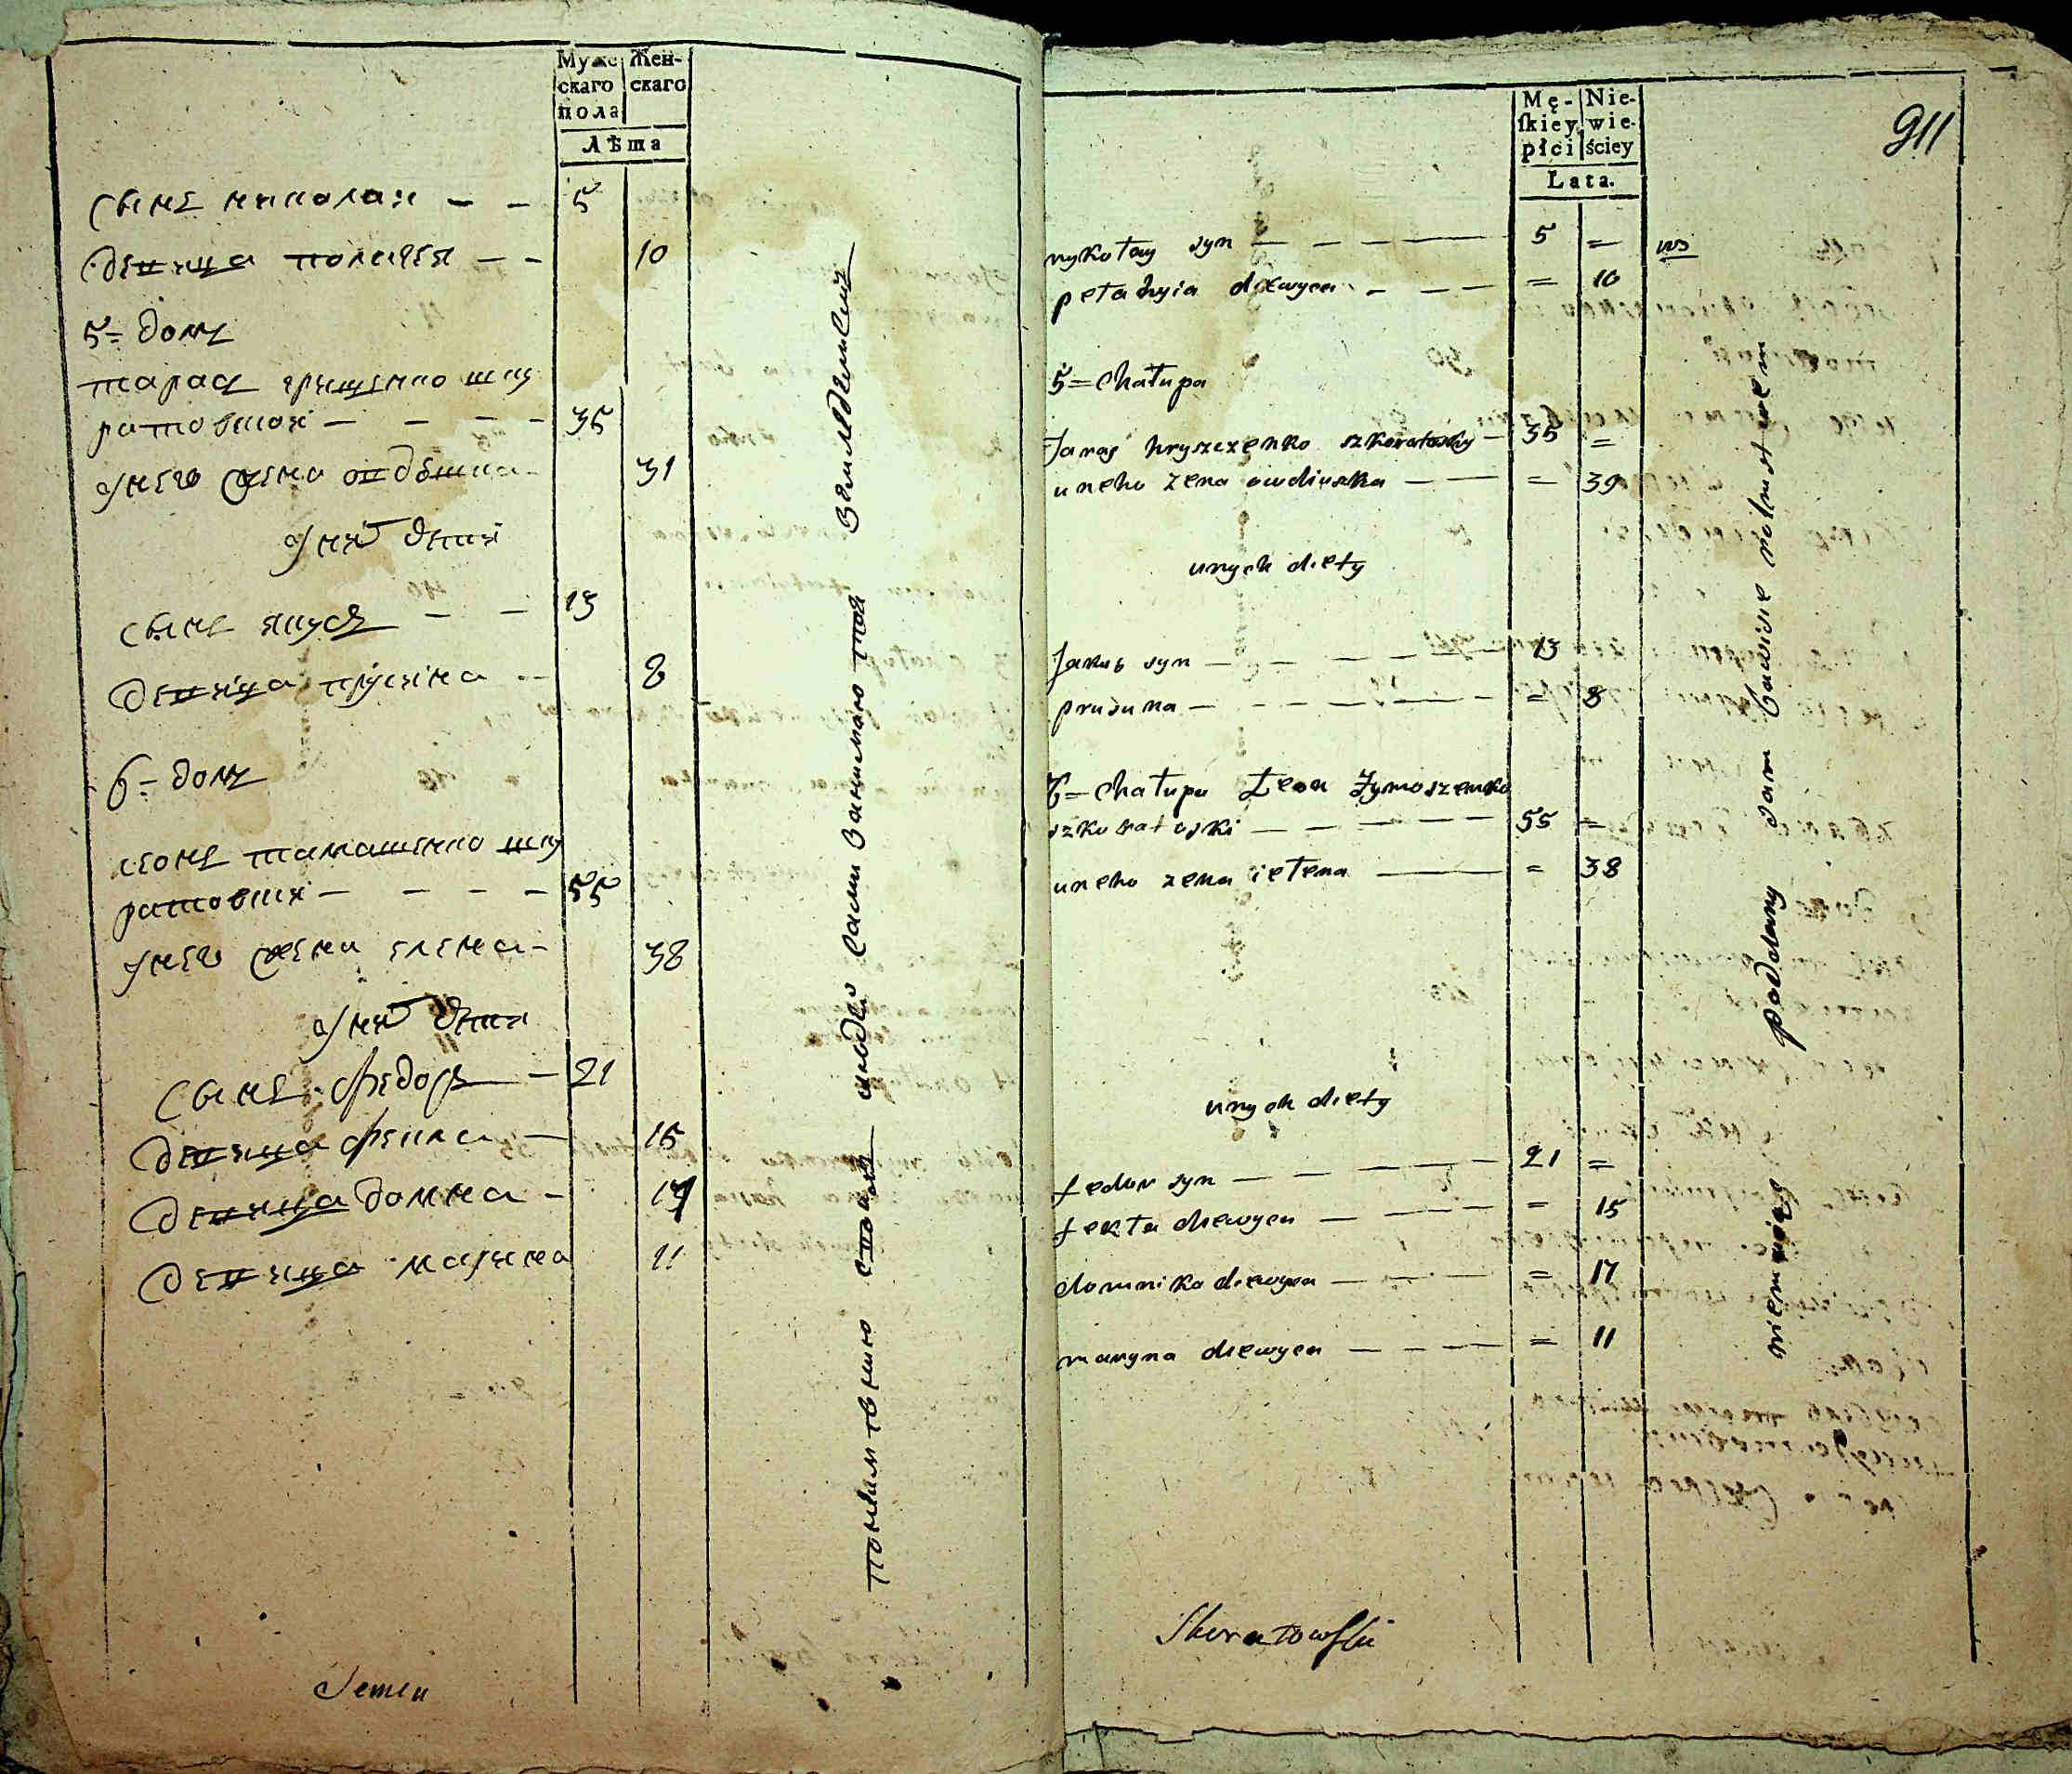 Мужс
скаго
пола
Жен-
скаго
Лѣта
сынъ николай — — 5
девица полагея — — 10
5= домъ
тарас грищенко шку
ратовски — — — — 35
у него жена овдюшка — 31
у них дети
сынъ якубъ — — 13
девица прусина — 8
6= домъ
леонъ тамашенко шку
ратовски — — — — 55
у него жена елена — 38
у них дети
сынъ федоръ — 21
девица фекла — 15
девица домна — 17
девица марина 11
людей сами занимаютъ земледелием
Semen
Mę-
skiey
płci
Nie-
wie-
ściey
Lata.
911
mykołay syn — — — — 5 =
pełahyia diewyca — — — = 10
5=Chałupa
Taras hryszczenko szkoratoski — 35 =
u neho zena owdiuszka — — = 39
unych diety
Jakub syn — — — — 13
prusuna — — — — = 8
6=Chałupa Leon Tymoszenko
szkoratoski — — — — 55 =
uneho zena ielena — = 38
unych diety
fedor syn — — — — 21 =
fekła diewyca — — — = 15
domnika diewyca — — — = 17
maryna diewyca — — — = 11
poddany sam bawisie rolnistwem
Skoratowski